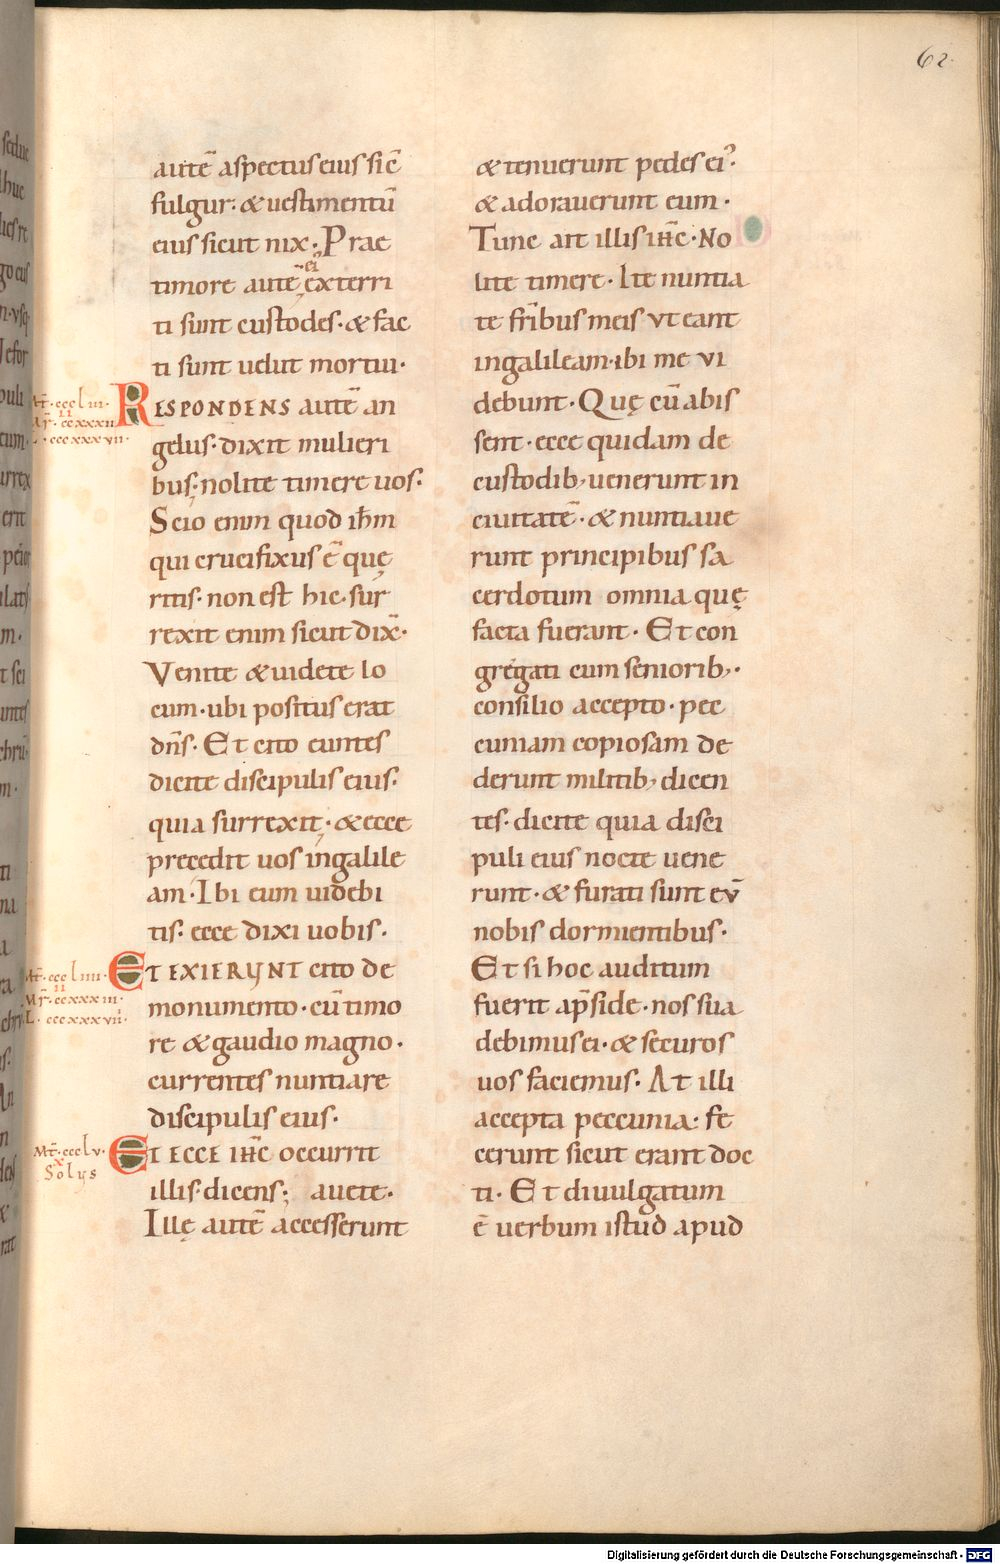 62
autē aspectus eius sic̄
fulgur: & uestimentū
eius sicut nix. Prae
timore autē ei exterri
ti sunt custodes. & fac
ti sunt uelut mortui.
RESPONDENS autē an
gelus. dixit mulieri
bus; nolite timere uos.
Scio enim quod ih̄m
qui crucifixus ē quę
ritis. non est hic. sur
rexit enim sicut dix̄.
Venite & uidete lo
cum. ubi positus erat
dn̄s. Et cito euntes
dicite discipulis eius.
quia surrexit; & ecce
precedit uos in galile
am. Ibi eum uidebi
tis. ecce dixi uobis.
ET EXIERUNT cito de
monumento. cū timo
re & gaudio magno.
currentes nuntiare
discipulis eius.
ET ECCE IHC̄ occurrit
illis. dicens; auete.
Illę autē accesserunt
Mt̄. ccc l iii.
II
Mr̄. ccxxxii
L. cccxxxvii.
Mt̄. ccc l iiii.
II
Mr̄. ccxxxiii.
L. cccxxxvii.
Mt̄. ccc l v.
X
Solus
& tenuerunt pedes ei᾿.
& adorauerunt eum.
Tunc ait illis ihc̄. No
lite timere. Ite nuntia
te fr̄ibus meis vt eant
in galileam. ibi me vi
debunt. Quę cū abis
sent. ecce quidam de
custodib; uenerunt in
ciuitatē. & nuntiaue
runt principibus sa
cerdotum omnia quę
facta fuerant. Et con
gregati cum seniorib;.
consilio accepto. pec
cuniam copiosam de
derunt militib; dicen
tes. dicite quia disci
puli eius nocte uene
runt. & furati sunt ev̄
nobis dormientibus.
Et si hoc auditum
fuerit ap̄side. nos sua
debimus ei. & securos
uos faciemus. At illi
accepta peccunia: fe
cerunt sicut erant doc
ti. Et diuulgatum
ē uerbum istud apud
Digitalisierung gefördert durch die Deutsche Forschungsgemeinschaft - DFG